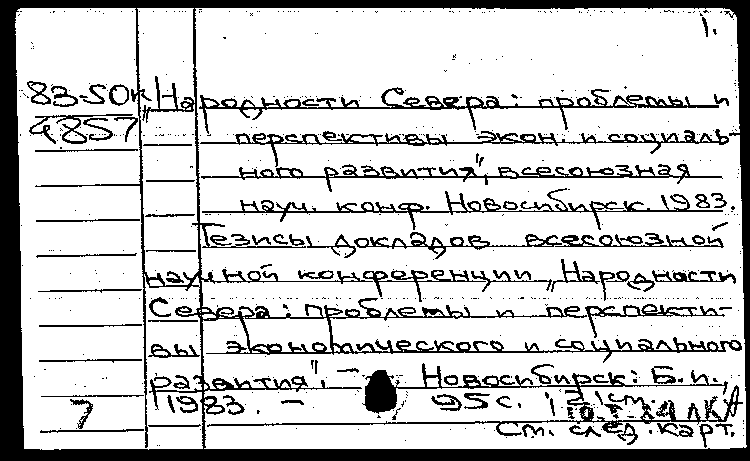 1.
83-50к „Народности Севера: проблемы и
4857 перспективы экон. и социаль-
ного развития", всесоюзная
науч. конф. Новосибирск. 1983.
Тезисы докладов всесоюзной
научной конференции „Народности
Севера: проблемы и перспекти-
вы экономического и социального
развития". — Новосибирск: Б.и.,
7 1983. — 95 с.
См. след. карт.